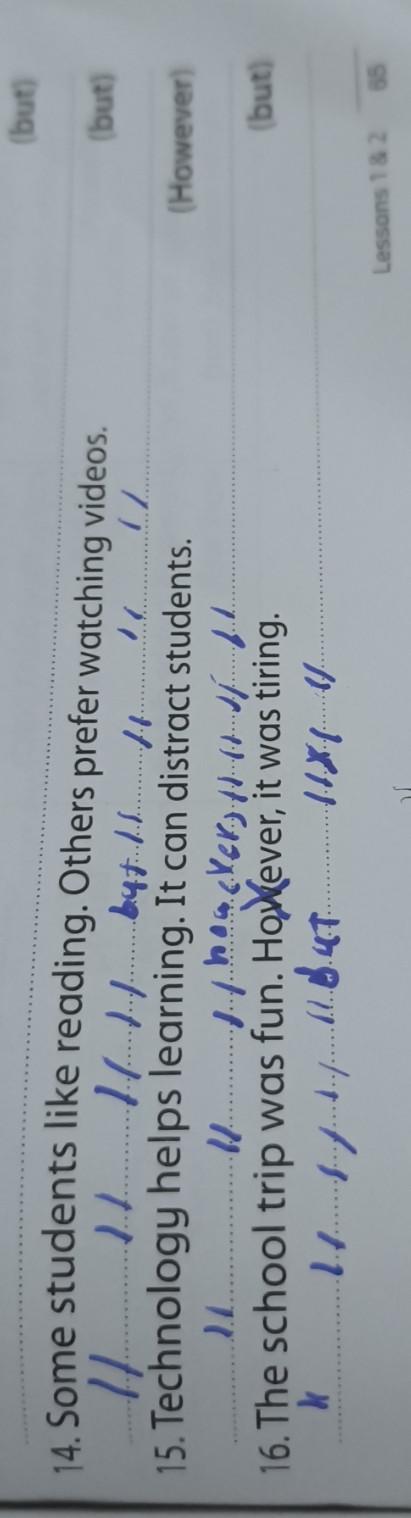 (but)
14. Some students like reading. Others prefer watching videos. (but)
〃 〃 〃 〃 but 〃 〃 〃 〃
15. Technology helps learning. It can distract students. (However)
〃 〃 〃 however, 〃 〃 〃 〃
16. The school trip was fun. However, it was tiring. (but)
〃 〃 〃 〃 〃 but 〃 〃 〃
Lessons 1 & 2 65